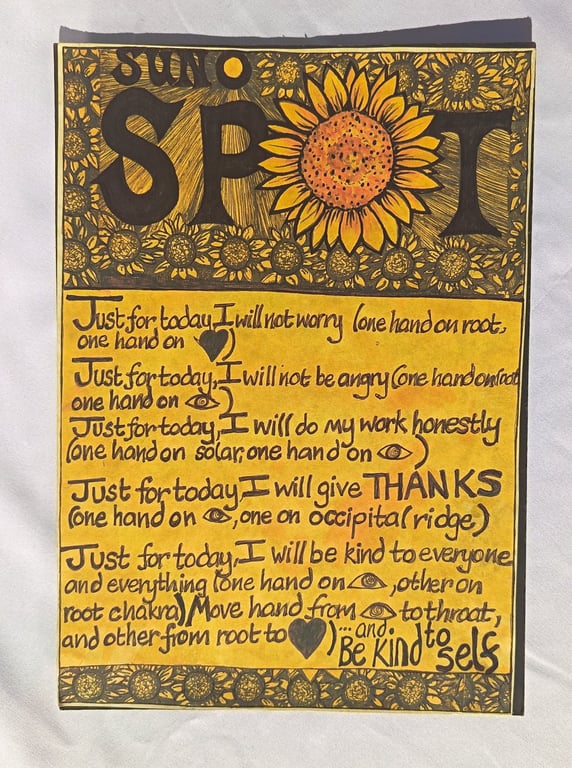 SUN
SPOT
Just for today, I will not worry (one hand on root,
one hand on )
Just for today, I will not be angry (one hand on root
one hand on )
Just for today, I will do my work honestly
(one hand on solar, one hand on )
Just for today, I will give THANKS
(one hand on , one on occipital ridge)
Just for today, I will be kind to everyone
and everything (one hand on , other on
root chakra) Move hand from to throat,
and other from root to ) ... and.
Be kind to self